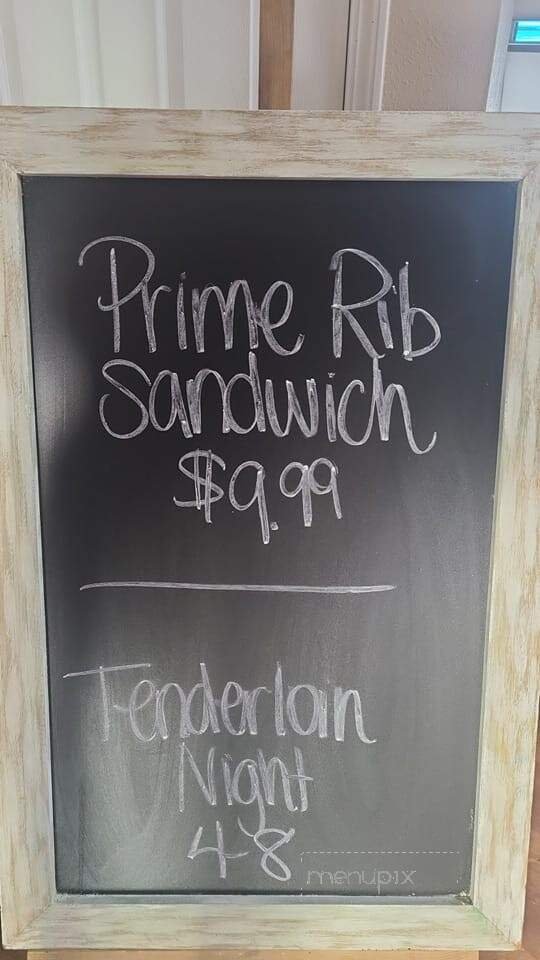 Prime Rib
Sandwich
$9.99
Tenderloin
Night
4-8
menupix